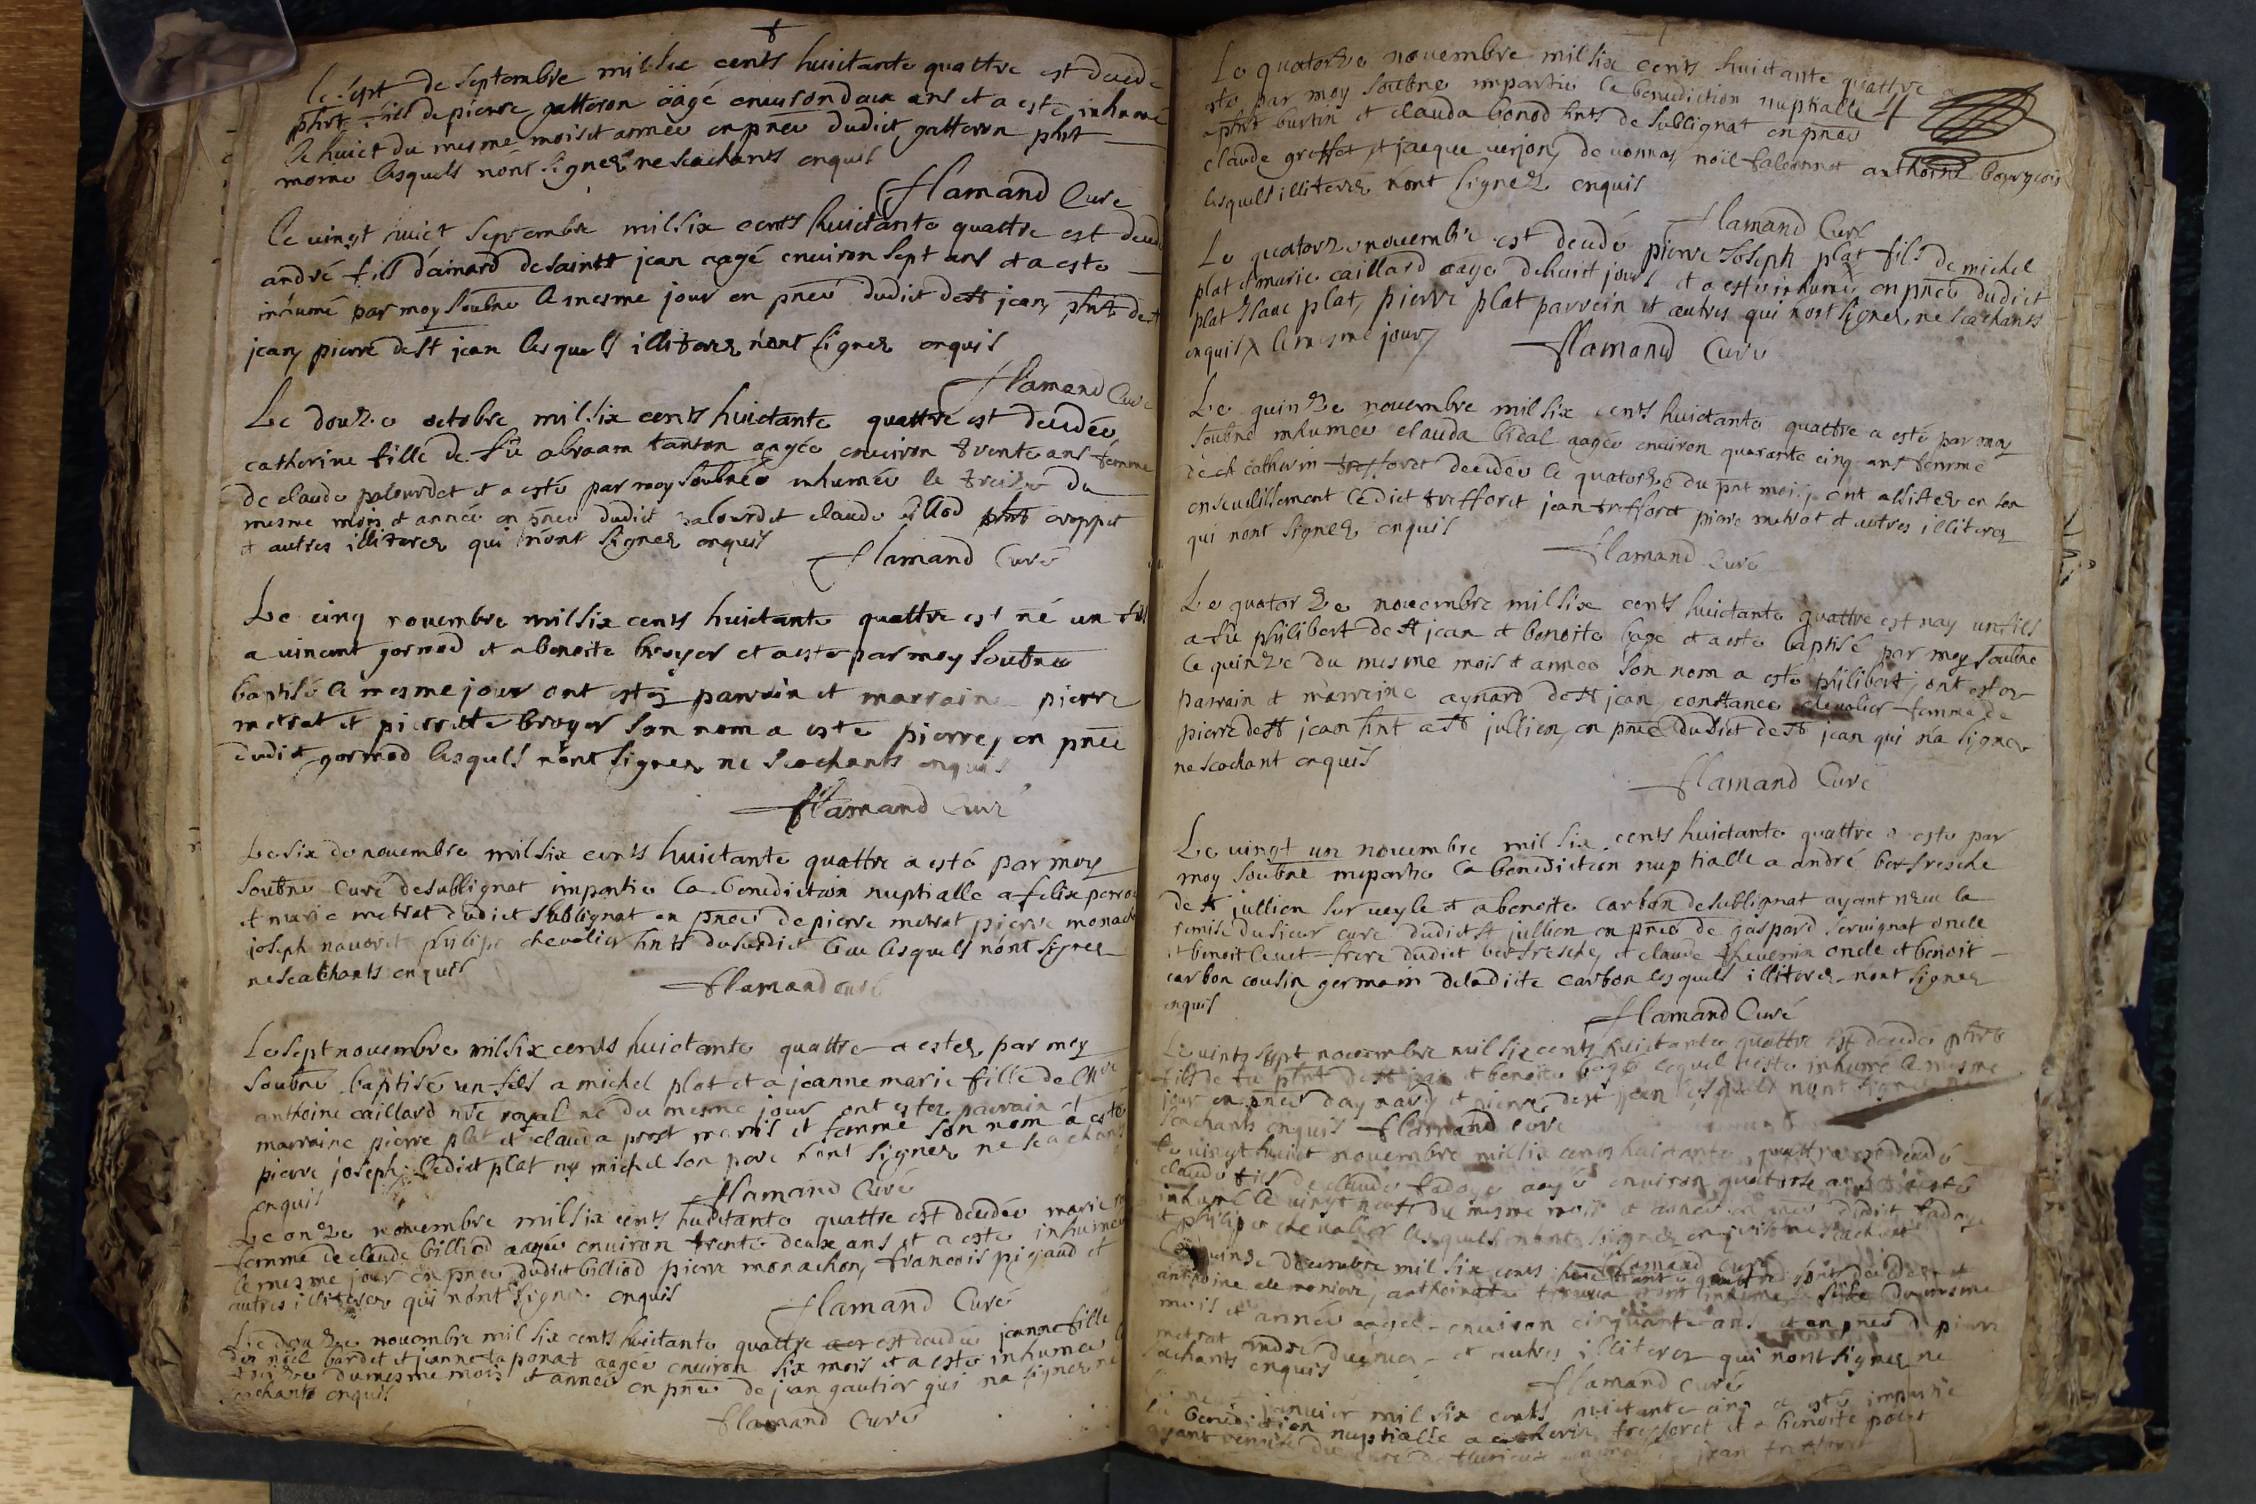 Le sept de septembre mil six cents huictante quattre est decede
phrt fils de pierre gatteron aagé environ deux ans et a esté inhumé
le huict du mesme mois et année en pnce dudict gatteron phrt
morne lesquels nont signez ne scachants enquis
flamand Curé
le vingt huict septembre mil six cents huictante quattre est decedé
andré fils d'ainard de sainct jean aagé environ sept ans et a esté
inhumé par moy soubne le mesme jour en pnce dudict de st jean, phrt de st
jean, pierre de st jean lesquels illiterez n'ont signez enquis
flamand Curé
Le douze octobre mil six cents huictante quattre est decedée
catherine fille de fû abraam tanton aagée environ trente ans femme
de claude palourdet et a esté par moy soubnée inhumée le treize du
mesme mois et année en pnce dudict palourdet claude billod phrt croppet
et autres illiterez qui n'ont signez enquis
flamand Curé
Le cinq novembre mil six cents huictante quattre est né un fils
a vincent gormod et a benoite broyer et a esté par moy soubne
baptisé le mesme jour ont estez parrain et marraine pierre
metrat et pierrette broyer son nom a esté pierre, en pnce
dudict gormod lesquels n'ont signez ne scachants enquis
flamand Curé
Le six de novembre mil six cents huictante quattre a esté par moy
soubne curé de sublignat impartie la benediction nuptialle a felix perro
et marie metrat dudict sublignat en pnce de pierre metrat pierre monach
joseph navoret philipe chevalier hnts du susdict lieu lesquels n'ont signez
ne scachants enquis
flamand curé
Le sept novembre mil six cents huictante quattre a estez par moy
soubne baptisé un fils a michel plat et a jeanne marie fille de Mre
anthoine caillard nre royal né du mesme jour ont estez parrain et
marraine pierre plat et clauda prost maris et femme son nom a esté
pierre joseph, ledict plat ny michel son pere n'ont signez ne scachants
enquis
flamand Curé
Le onze novembre mil six cents huictante quattre est decedée marie
femme de claude billiod aagée environ trente deux ans et a esté inhumée
le mesme jour en pnce dudict billiod pierre monachon, francois pigaud et
autres illiterez qui n'ont signez enquis
flamand Curé
Le douze novembre mil six cents huictante quattre est decedée jeanne fille
de noel bardet et jeanne laponat aagée environ six mois et a esté inhumée
treize du mesme mois et année en pnce de jean gautier qui na signez ne
scachants enquis
flamand Curé
Le quatorze novembre mil six cents huictante quattre a
esté par moy soubne impartie la benediction nuptialle
a phrt burtin et clauda bonod hnts de sublignat en pnce
claude greffet, et jacque verjon, de vonnas, noël falconnet anthoine bourgeois
lesquels illiterez n'ont signez enquis
flamand Curé
Le quatorze novembre est decedé pierre Joseph plat fils de michel
plat et marie caillard aage de huict jours et a esté inhumé en pnce dudict
plat Isaac plat, pierre plat parrein et autres qui n'ont signez, ne scachants
enquis le mesme jour
flamand Curé
Le quinze novembre mil six cents huictante quattre a esté par moy
soubne inhumée clauda bidal aagée environ quarante cinq ans femme
de catherin trefforet decedée le quatorze du pnt mois, ont assistez en son
ensevelissement ledict trefforet jean trefforet pierre metrat et autres illiterez
qui nont signez enquis
flamand Curé
Le quatorze novembre mil six cents huictante quattre est nay un fils
a fû philibert de st jean et benoite bage et a esté baptisé par moy soubne
le quinze du mesme mois et annee son nom a esté philibert, ont estez
parrain et marreine aynard de st jean, constance chevalier femme de
pierre de st jean hnt a st jullien, en pnce dudict de st jean qui n'a signez
ne scachant enquis
flamand Curé
Le vingt un novembre mil six cents huictante quattre a esté par
moy soubne impartie la benediction nuptialle a andré bertresche
de st jullien sur veyle et a benoite carbon de sublignat ayant veue la
remise du sieur curé dudict st jullien en pnce de gaspard servignat oncle
et benoit levet frere dudict bertresche, et claude thevenin oncle et benoit
carbon cousin germain de ladicte carbon lesquels illiterez nont signez
enquis
flamand Curé
Le vingt sept novembre mil six cents huictante quattre est decedé phrt
fils de fu phrt de st jean et benoite bage lequel a esté inhumé le mesme
jour en pnce daynard et pierre de st jean lesquels nont signez ne
scachants enquis flamand Curé
Le vingt huict novembre mil six cents huictante quattre est decedé
claude fils de claude fadoye aagé environ quatorze ans et a esté
inhumé le vingt neuf du mesme mois et année en pnce dudict fadoye
et philipe chevalier lesquels nont signez enquis ne scachant
flamand Curé
decembre mil six cents huictante quattre sont decedez
anthoine anthoinette inhumé du mesme
mois et année aagez environ cinquante ans et en pnce de pierre
metrat et autres illiterez qui nont signez ne
scachants enquis
flamand curé
janvier mil six cents huictante cinq a esté impartie
la benediction nuptialle a catherin trefforet et a benoite
ayant remise du curé de jean trefforet